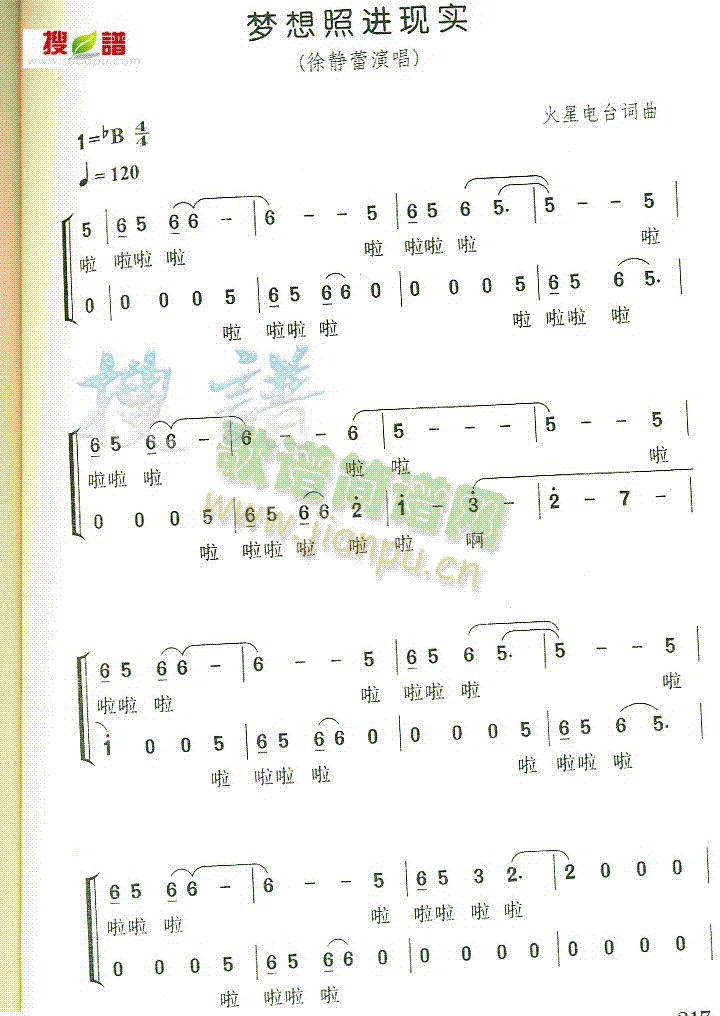 搜谱
www.sooopu.com
梦想照进现实
(徐静蕾演唱)
火星电台词曲
1=♭B 4/4
♩=120
5 | 6 5 6 6 - | 6 - - 5 | 6 5 6 5. | 5 - - 5 |
啦 啦啦 啦 啦 啦啦 啦 啦
0 | 0 0 0 5 | 6 5 6 6 0 | 0 0 0 5 | 6 5 6 5. |
啦 啦啦 啦 啦 啦啦 啦
搜譜
6 5 6 6 - | 6 - - 6 | 5 - - - | 5 - - 5 |
啦啦 啦 啦 啦 啦
歌谱简谱网
www.jianpu.cn
0 0 0 5 | 6 5 6 6 2̇ | 1̇ - 3̇ - | 2̇ - 7 - |
啦 啦啦 啦 啦 啦 啊
6 5 6 6 - | 6 - - 5 | 6 5 6 5. | 5 - - 5 |
啦啦 啦 啦 啦啦 啦 啦
1̇ 0 0 5 | 6 5 6 6 0 | 0 0 0 5 | 6 5 6 5. |
啦 啦啦 啦 啦 啦啦 啦
6 5 6 6 - | 6 - - 5 | 6 5 3 2. | 2 0 0 0 |
啦啦 啦 啦 啦啦 啦 啦
0 0 0 5 | 6 5 6 6 0 | 0 0 0 0 | 0 0 0 0 |
啦 啦啦 啦
217